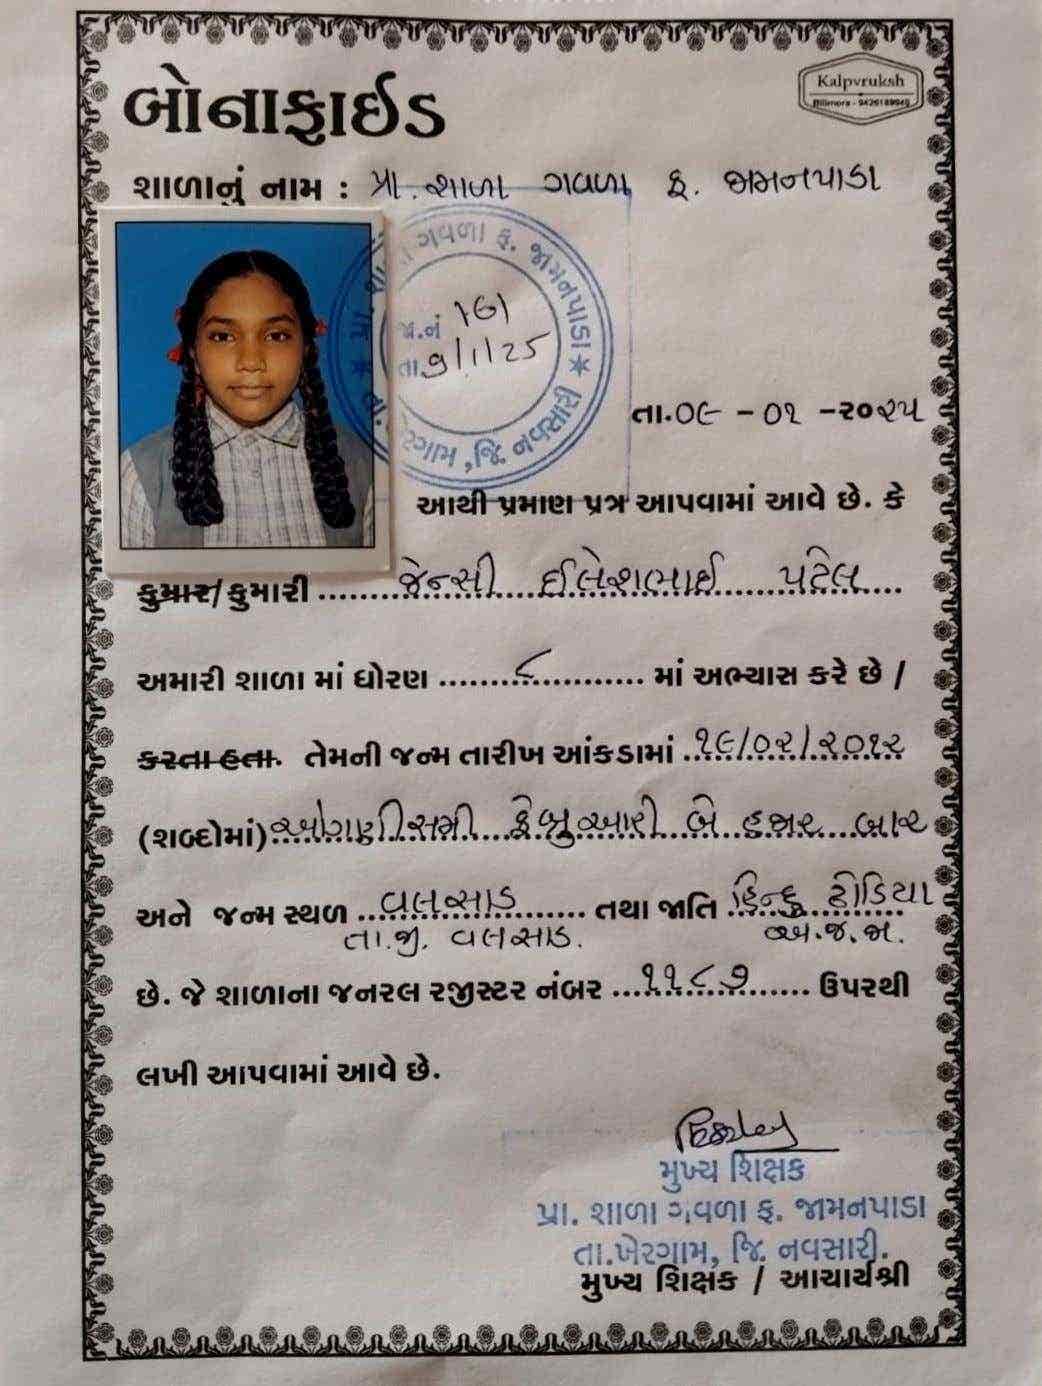 બોનાફાઈડ
Kalpvruksh
Bilimora - 9426189949
શાળાનું નામ : પ્રા. શાળા ગવળા ફ. જામનપાડા
ગવળા ફ. જામનપાડા
જા.નં 161
તા. 9/1/25
જિ. નવસારી
તા.૦૯ - ૦૧ -૨૦૨૫
આથી પ્રમાણ પત્ર આપવામાં આવે છે. કે
કુમાર/કુમારી ........જેન્સી ઈલેશભાઈ પટેલ....
અમારી શાળા માં ધોરણ .........૮............ માં અભ્યાસ કરે છે /
કરતા હતા. તેમની જન્મ તારીખ આંકડામાં ..૧૯/૦૨/૨૦૧૨
(શબ્દોમાં) ઓગણીસમી ફેબ્રુઆરી બે હજાર બાર
અને જન્મ સ્થળ ...વલસાડ....... તથા જાતિ ..હિન્દુ ઢોડિયા
તા.જી. વલસાડ. અ.જ.જા.
છે. જે શાળાના જનરલ રજીસ્ટર નંબર ...૧૧૮૭....... ઉપરથી
લખી આપવામાં આવે છે.
મુખ્ય શિક્ષક
પ્રા. શાળા ગવળા ફ. જામનપાડા
તા.ખેરગામ, જિ. નવસારી.
મુખ્ય શિક્ષક / આચાર્યશ્રી